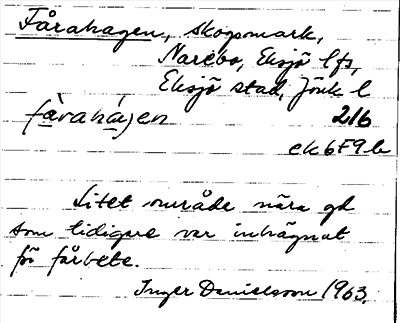 Fårahagen, skogsmark,
Narebo, Eksjö lfs,
Eksjö stad, Jönk l
fàrahá)en 216
ek 6F9b
Litet område nära gd
som tidigare var inhägnat
för fårbete.
Inger Danielsson 1963.